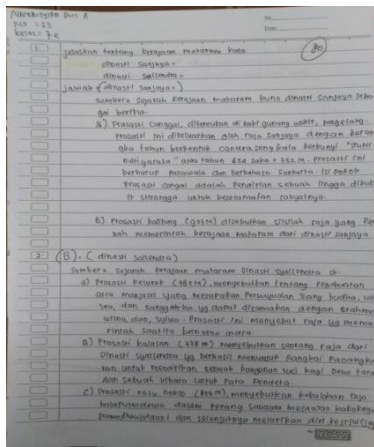 No = 23
kelas = 7e
80
1 Jelaskan tentang kerajaan mataram kuno
dinasti sanjaya =
dinasti sailendra =
Jawab = (dinasti sanjaya =)
Sumber sejarah kerajaan mataram kuno dinasti sanjaya seba
gai berikut.
Prasasti Canggal, ditemukan di kaki gunung wukir, magelang.
Prasasti ini dikeluarkan oleh raja Sanjaya dengan
gka tahun berbentuk candra sengkala berbunyi "sruti
indriyarasa" atau tahun 654 saka = 732 M. Prasasti ini
berhuruf pallawa dan berbahasa Sanskerta isi pokok
prasasti canggal adalah pendirian sebuah lingga di bukit
untuk keselamatan rakyatnya.
B). Prasasti balitung (907M) disebutkan silsilah raja yang per
nah memerintah kerajaan mataram dari dinasti sanjaya
2 (B). (dinasti Sailendra)
Sumber sejarah kerajaan mataram Dinasti Syailendra
menyebutkan tentang pembuatan
arca manjusri yang merupakan perwujudan sang budha, wi
snu, dan sanggha yg dapat disamakan dengan brahma,
wisnu, dan, Prasasti ini menyebut raja yg meme
rintah saat itu bernama indra.
menyebutkan seorang raja dari
Dinasti Syailendra yg berhasil
untuk mendirikan sebuah bangunan suci bagi Dewi tara
dan sebuah vihara untuk para Pendeta
C) Prasasti menyebutkan kekalahan raja
balaputradewa dalam perang saudara melawan kakaknya
pramodhawardani dan selanjutnya melarikan diri ke sriwijaya